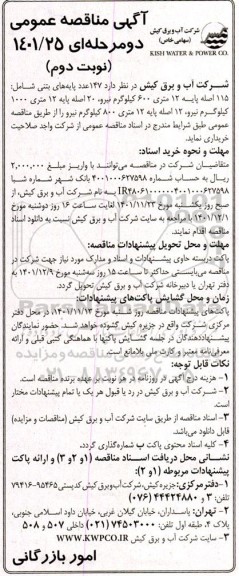 آگهی مناقصه عمومی
دومرحله‌ای ۱۴۰۱/۲۵
(نوبت دوم)
شرکت آب و برق کیش
(سهامی خاص)
KISH WATER & POWER CO.
شرکت آب و برق کیش در نظر دارد ۱۴۷ عدد پایه‌های بتنی شامل:
۱۱۵ اصله پایه ۱۲ متری ۶۰۰ کیلوگرم نیرو، ۲۰ اصله پایه ۱۲ متری ۱۰۰۰
کیلوگرم نیرو، ۱۲ اصله پایه ۱۲ متری ۸۰۰ کیلوگرم نیرو را از طریق مناقصه
عمومی طبق شرایط مندرج در اسناد مناقصه عمومی از شرکت واجد صلاحیت
خریداری نماید.
مهلت و نحوه خرید اسناد:
متقاضیان شرکت در مناقصه می‌توانند با واریز مبلغ ۲,۰۰۰,۰۰۰
ریال به حساب شماره ۴۰۰۱۰۰۰۶۲۷۵۹۸ بانک شهر شماره شبا
به نام شرکت آب و برق کیش، از
صبح روز یکشنبه مورخ ۱۴۰۱/۱۱/۲۳ لغایت ساعت ۱۶ روز دوشنبه مورخ
۱۴۰۱/۱۲/۱ با مراجعه به سایت شرکت آب و برق کیش نسبت به دانلود اسناد
مناقصه اقدام نمایند.
مهلت و محل تحویل پیشنهادات مناقصه:
پاکت دربسته حاوی پیشنهادات و اسناد و مدارک مورد نیاز جهت شرکت در
مناقصه می‌بایستی حداکثر تا ساعت ۱۵ روز سه‌شنبه مورخ ۱۴۰۱/۱۲/۹ به
دفتر تهران یا دبیرخانه شرکت آب و برق کیش تحویل گردد.
زمان و محل گشایش پاکت‌های پیشنهادات:
پاکت‌های پیشنهادات مناقصه روز شنبه مورخ ۱۴۰۱/۱۲/۱۳، در محل دفتر
مرکزی شرکت واقع در جزیره کیش گشوده خواهد شد. حضور نمایندگان
پیشنهاددهندگان در جلسه گشایش پاکتها با هماهنگی کتبی قبلی و ارائه
معرفی‌نامه معتبر و کارت ملی بلامانع است.
نکات قابل توجه:
۱- هزینه درج آگهی در روزنامه در هر نوبت بر عهده برنده مناقصه است.
۲- شرکت آب و برق کیش در رد یا قبول هر یک یا تمام پیشنهادات مختار
است.
۳- اسناد مناقصه از طریق سایت شرکت آب و برق کیش (مناقصات و مزایده)
قابل دانلود می‌باشد.
۴- کلیه اسناد محتوی پاکت ب شماره‌گذاری گردد.
نشانی محل دریافت اسناد مناقصه (۱و ۲و ۳) و ارائه پاکت
پیشنهادات مربوطه (۱و ۲):
۱-دفترمرکزی:جزیره‌کیش،شرکت‌آب‌وبرق‌کیش کدپستی ۹۵۴۶۵-۷۹۴۱۶
تلفن: ۳ و ۴۴۴۲۴۸۸۰ (۰۷۶)
۲- تهران: پاسداران، خیابان گیلان غربی، خیابان داود اسلامی جنوبی،
پلاک ۴، طبقه اول تلفن: ۷۴۵۰۳۰۰۰ (۰۲۱) داخلی ۵۰۷ و ۵۰۸
۳- سایت شرکت آب و برق کیش WWW.KWPCO.IR
امور بازرگانی